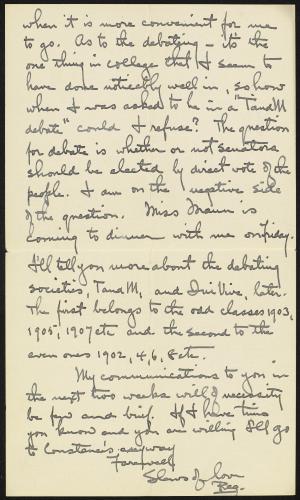 when it is more convenient for me
to go. As to the debating - its the
one thing in college that I seem to
have done noticably well in, so how
when I was asked to be in a "T and M
debate" could I refuse? The question
for debate is whether or not senators
should be elected by direct vote of the
people. I am on the negative side
of the question. Miss is
coming to dinner with me on Friday.
I'll tell you more about the debating
societies, T and M, and Qui Vive, later.
The first belongs to the odd classes 1903,
1905, 1907 etc and the second to the
even ones 1902, 4, 6, 8 etc.
My communications to you in
the next two weeks will of necessity
be few and brief. If I have time
you know and you are willing I'll go
to Constance's anyway
Farewell
Slews of love
Peg-